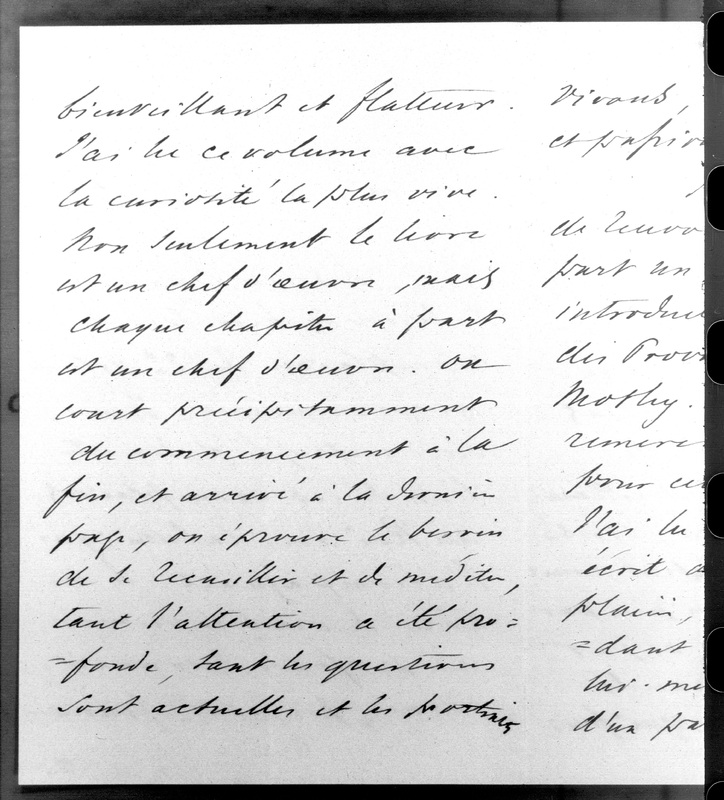 bienveillant et flatteur.
J'ai lu ce volume avec
la curiosité la plus vive.
Non seulement le livre
est un chef d'œuvre, mais
chaque chapitre à part
est un chef d'œuvre. On
court précipitamment
du commencement à la
fin, et arrivé à la dernière
page, on éprouve le besoin
de se recueillir et de méditer,
tant l'attention a été pro=
=fonde, tant les questions
sont actuelles et les portraits
vivants,
et passio
de
part un
introduc
des Prov
Motley.
remerc
pour ce
J'ai lu
écrit a
plaisir,
=dant
lui-me
d'un pa